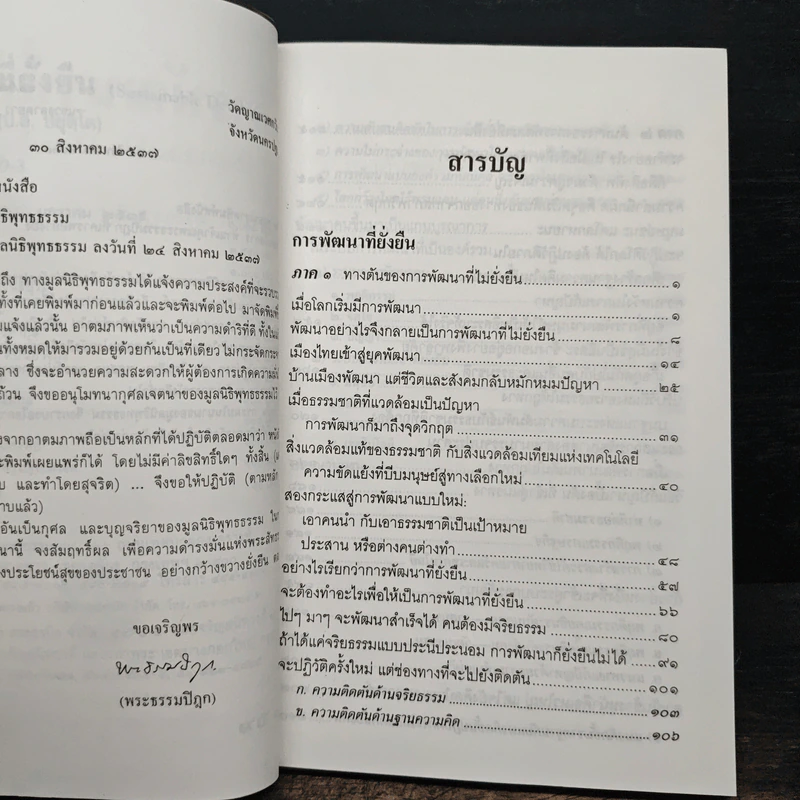 วัดญาณเวศก
จังหวัดนครปฐ
๓๐ สิงหาคม ๒๕๓๗
นังสือ
ธิพุทธธรรม
ลนิธิพุทธธรรม ลงวันที่ ๒๔ สิงหาคม ๒๕๓๗
ถึง ทางมูลนิธิพุทธธรรมได้แจ้งความประสงค์ที่จะรวบรว
ทั้งที่เคยพิมพ์มาก่อนแล้วและจะพิมพ์ต่อไป มาจัดพิมพ์
มแจ้งแล้วนั้น อาตมภาพเห็นว่าเป็นความดำริที่ดี ทั้งใน
นทั้งหมดให้มารวมอยู่ด้วยกันเป็นที่เดียว ไม่กระจัดกระ
ลาง ซึ่งจะอำนวยความสะดวกให้ผู้ต้องการเกิดความ
ถ้วน จึงขออนุโมทนากุศลเจตนาของมูลนิธิพุทธธรรม
งจากอาตมภาพถือเป็นหลักที่ได้ปฏิบัติตลอดมาว่า หนัง
ะพิมพ์เผยแพร่ก็ได้ โดยไม่มีค่าลิขสิทธิ์ใดๆ ทั้งสิ้น
บ และทำโดยสุจริต) ... จึงขอให้ปฏิบัติ (ตามหลัก
าบแล้ว)
อันเป็นกุศล และบุญจริยาของมูลนิธิพุทธธรรม ใน
นานี้ จงสัมฤทธิ์ผล เพื่อความดำรงมั่นแห่งพระสัทธ
งประโยชน์สุขของประชาชน อย่างกว้างขวางยั่งยืน
ขอเจริญพร
(พระธรรมปิฎก)
สารบัญ
การพัฒนาที่ยั่งยืน
ภาค ๑ ทางตันของการพัฒนาที่ไม่ยั่งยืน ๑
เมื่อโลกเริ่มมีการพัฒนา ๑
พัฒนาอย่างไรจึงกลายเป็นการพัฒนาที่ไม่ยั่งยืน ๘
เมืองไทยเข้าสู่ยุคพัฒนา ๑๔
บ้านเมืองพัฒนา แต่ชีวิตและสังคมกลับหมักหมมปัญหา ๒๕
เมื่อธรรมชาติที่แวดล้อมเป็นปัญหา
การพัฒนาก็มาถึงจุดวิกฤต ๓๑
สิ่งแวดล้อมแท้ของธรรมชาติ กับสิ่งแวดล้อมเทียมแห่งเทคโนโลยี
ความขัดแย้งที่บีบมนุษย์สู่ทางเลือกใหม่ ๔๐
สองกระแสสู่การพัฒนาแบบใหม่:
เอาคนนำ กับเอาธรรมชาติเป็นเป้าหมาย
ประสาน หรือต่างคนต่างทำ ๔๘
อย่างไรเรียกว่าการพัฒนาที่ยั่งยืน ๕๗
จะต้องทำอะไรเพื่อให้เป็นการพัฒนาที่ยั่งยืน ๖๖
ไปๆ มาๆ จะพัฒนาสำเร็จได้ คนต้องมีจริยธรรม ๘๐
ถ้าได้แค่จริยธรรมแบบประนีประนอม การพัฒนาก็ยั่งยืนไม่ได้ ๙๑
จะปฏิวัติครั้งใหม่ แต่ช่องทางที่จะไปยังติดตัน ๑๐๑
ก. ความติดตันด้านจริยธรรม ๑๐๓
ข. ความติดตันด้านฐานความคิด ๑๐๖